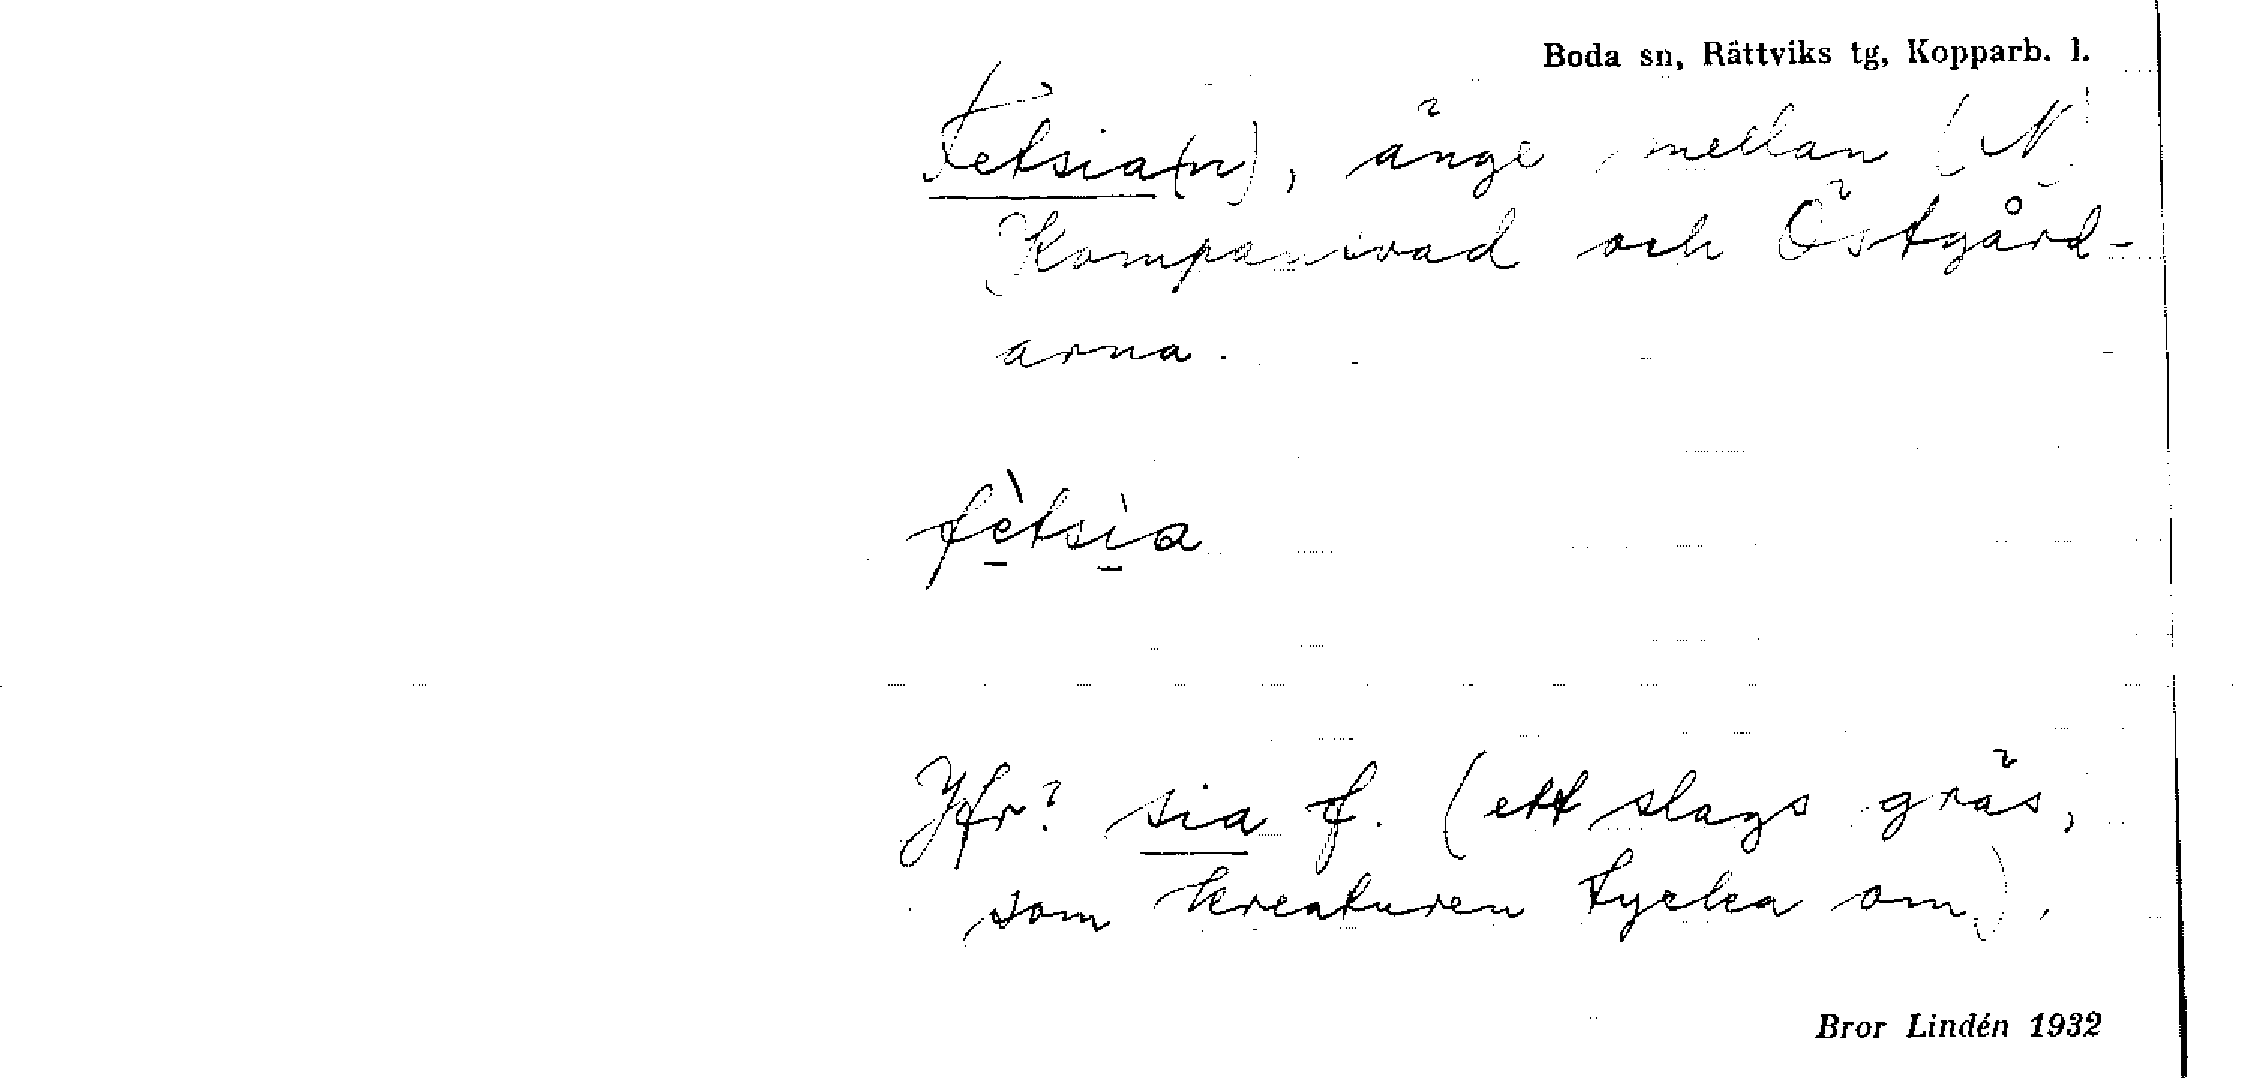 Boda sn, Rättviks tg, Kopparb. l.
Fetsia(n), änge mellan (N)
Kompanivad och Östgård-
arna.
fètsìa
Jfr? sia f. (ett slags gräs,
som kreaturen tycka om).
Bror Lindén 1932